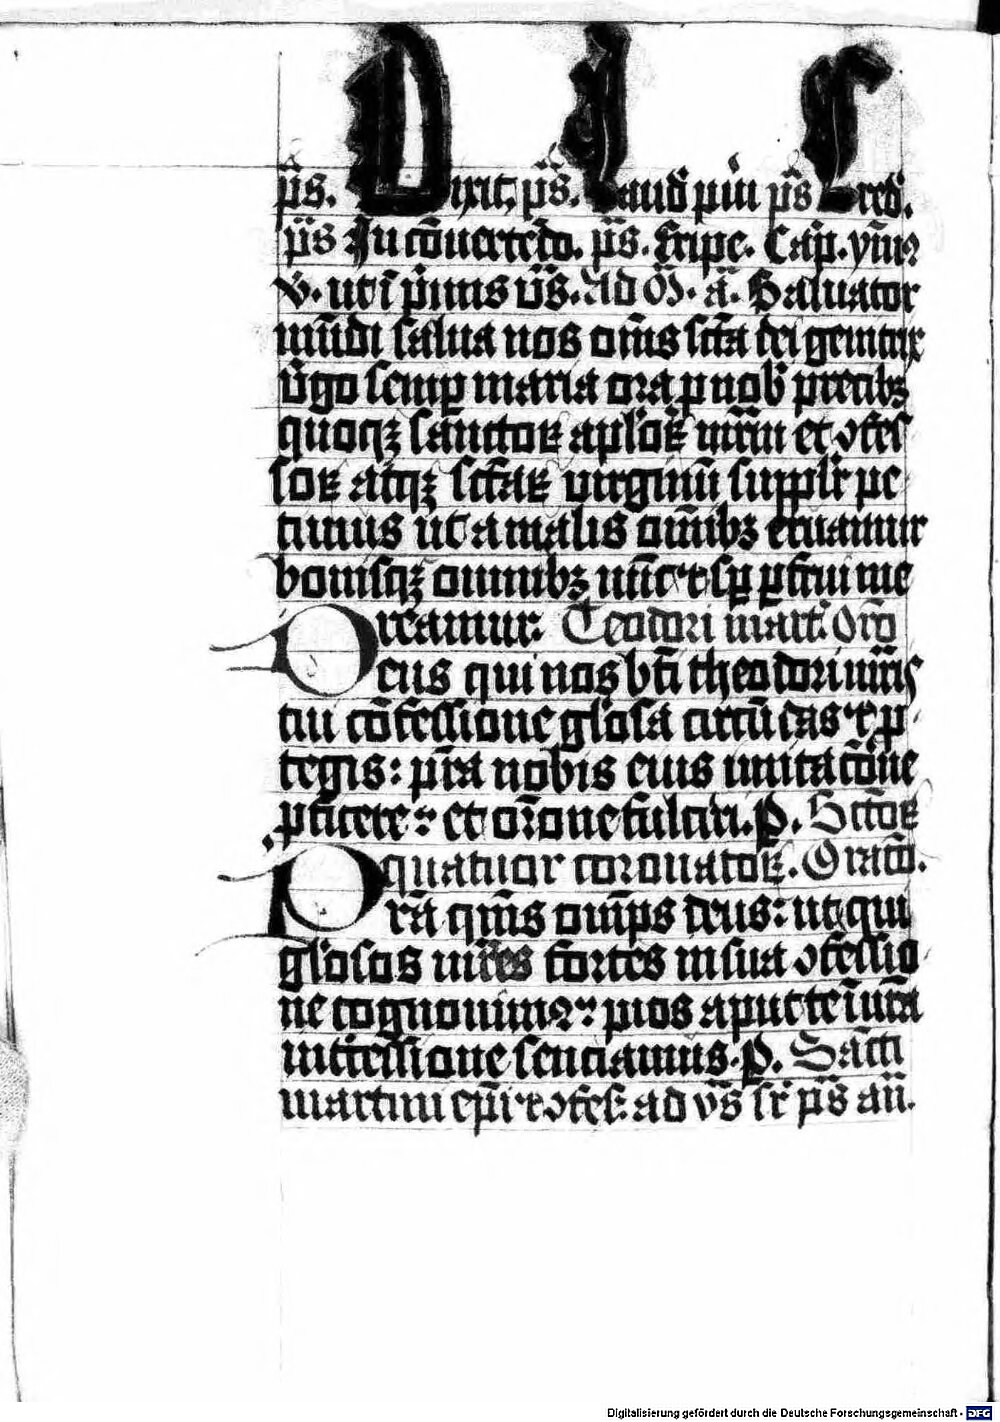 p̄s. Dixit, p̄s. Laud̄ pūi p̄s Cred̄.
p̄s In cōuertēdo. p̄s. Eripe. Cap̄. ym̄9
v̄. ut ī p̄imis v̄s. Ad M̄. ā. Saluator
mūdi salua nos om̄s sc̄ta dei genitrix
v̄go semp maria ora p nob̄ precibꝫ
quoqꝫ sanctoꝝ aplōꝝ mr̄m et ꝯfes
soꝝ atqꝫ sc̄taꝝ virginū supplr̄ pe
timus ut a malis om̄ibꝫ eruamur
bonisqꝫ omnibꝫ nūc ⁊ sp̄ ꝑfrui me
reamur: Teodori mart̄. Or̄o
Deus qui nos bt̄i theodori mr̄is
tui cōfessione glōsa circūdas ⁊ ꝓ
tegis: pr̄a nobis eius imitacōne
ꝓficere: et or̄one fulciri. P. Sc̄toꝝ
quatuor coronatoꝝ. Oracō.
Pr̄a qm̄s om̄ps deus: ut qui
glōsos mr̄es fortes in sua ꝯfessio
ne cognouim9: pios aput te ī nr̄a
int̄cessione senciamus. P. Sācti
martini ep̄i ⁊ ꝯfes: ad v̄s sr̄ p̄s an̄.
Digitalisierung gefördert durch die Deutsche Forschungsgemeinschaft - DFG